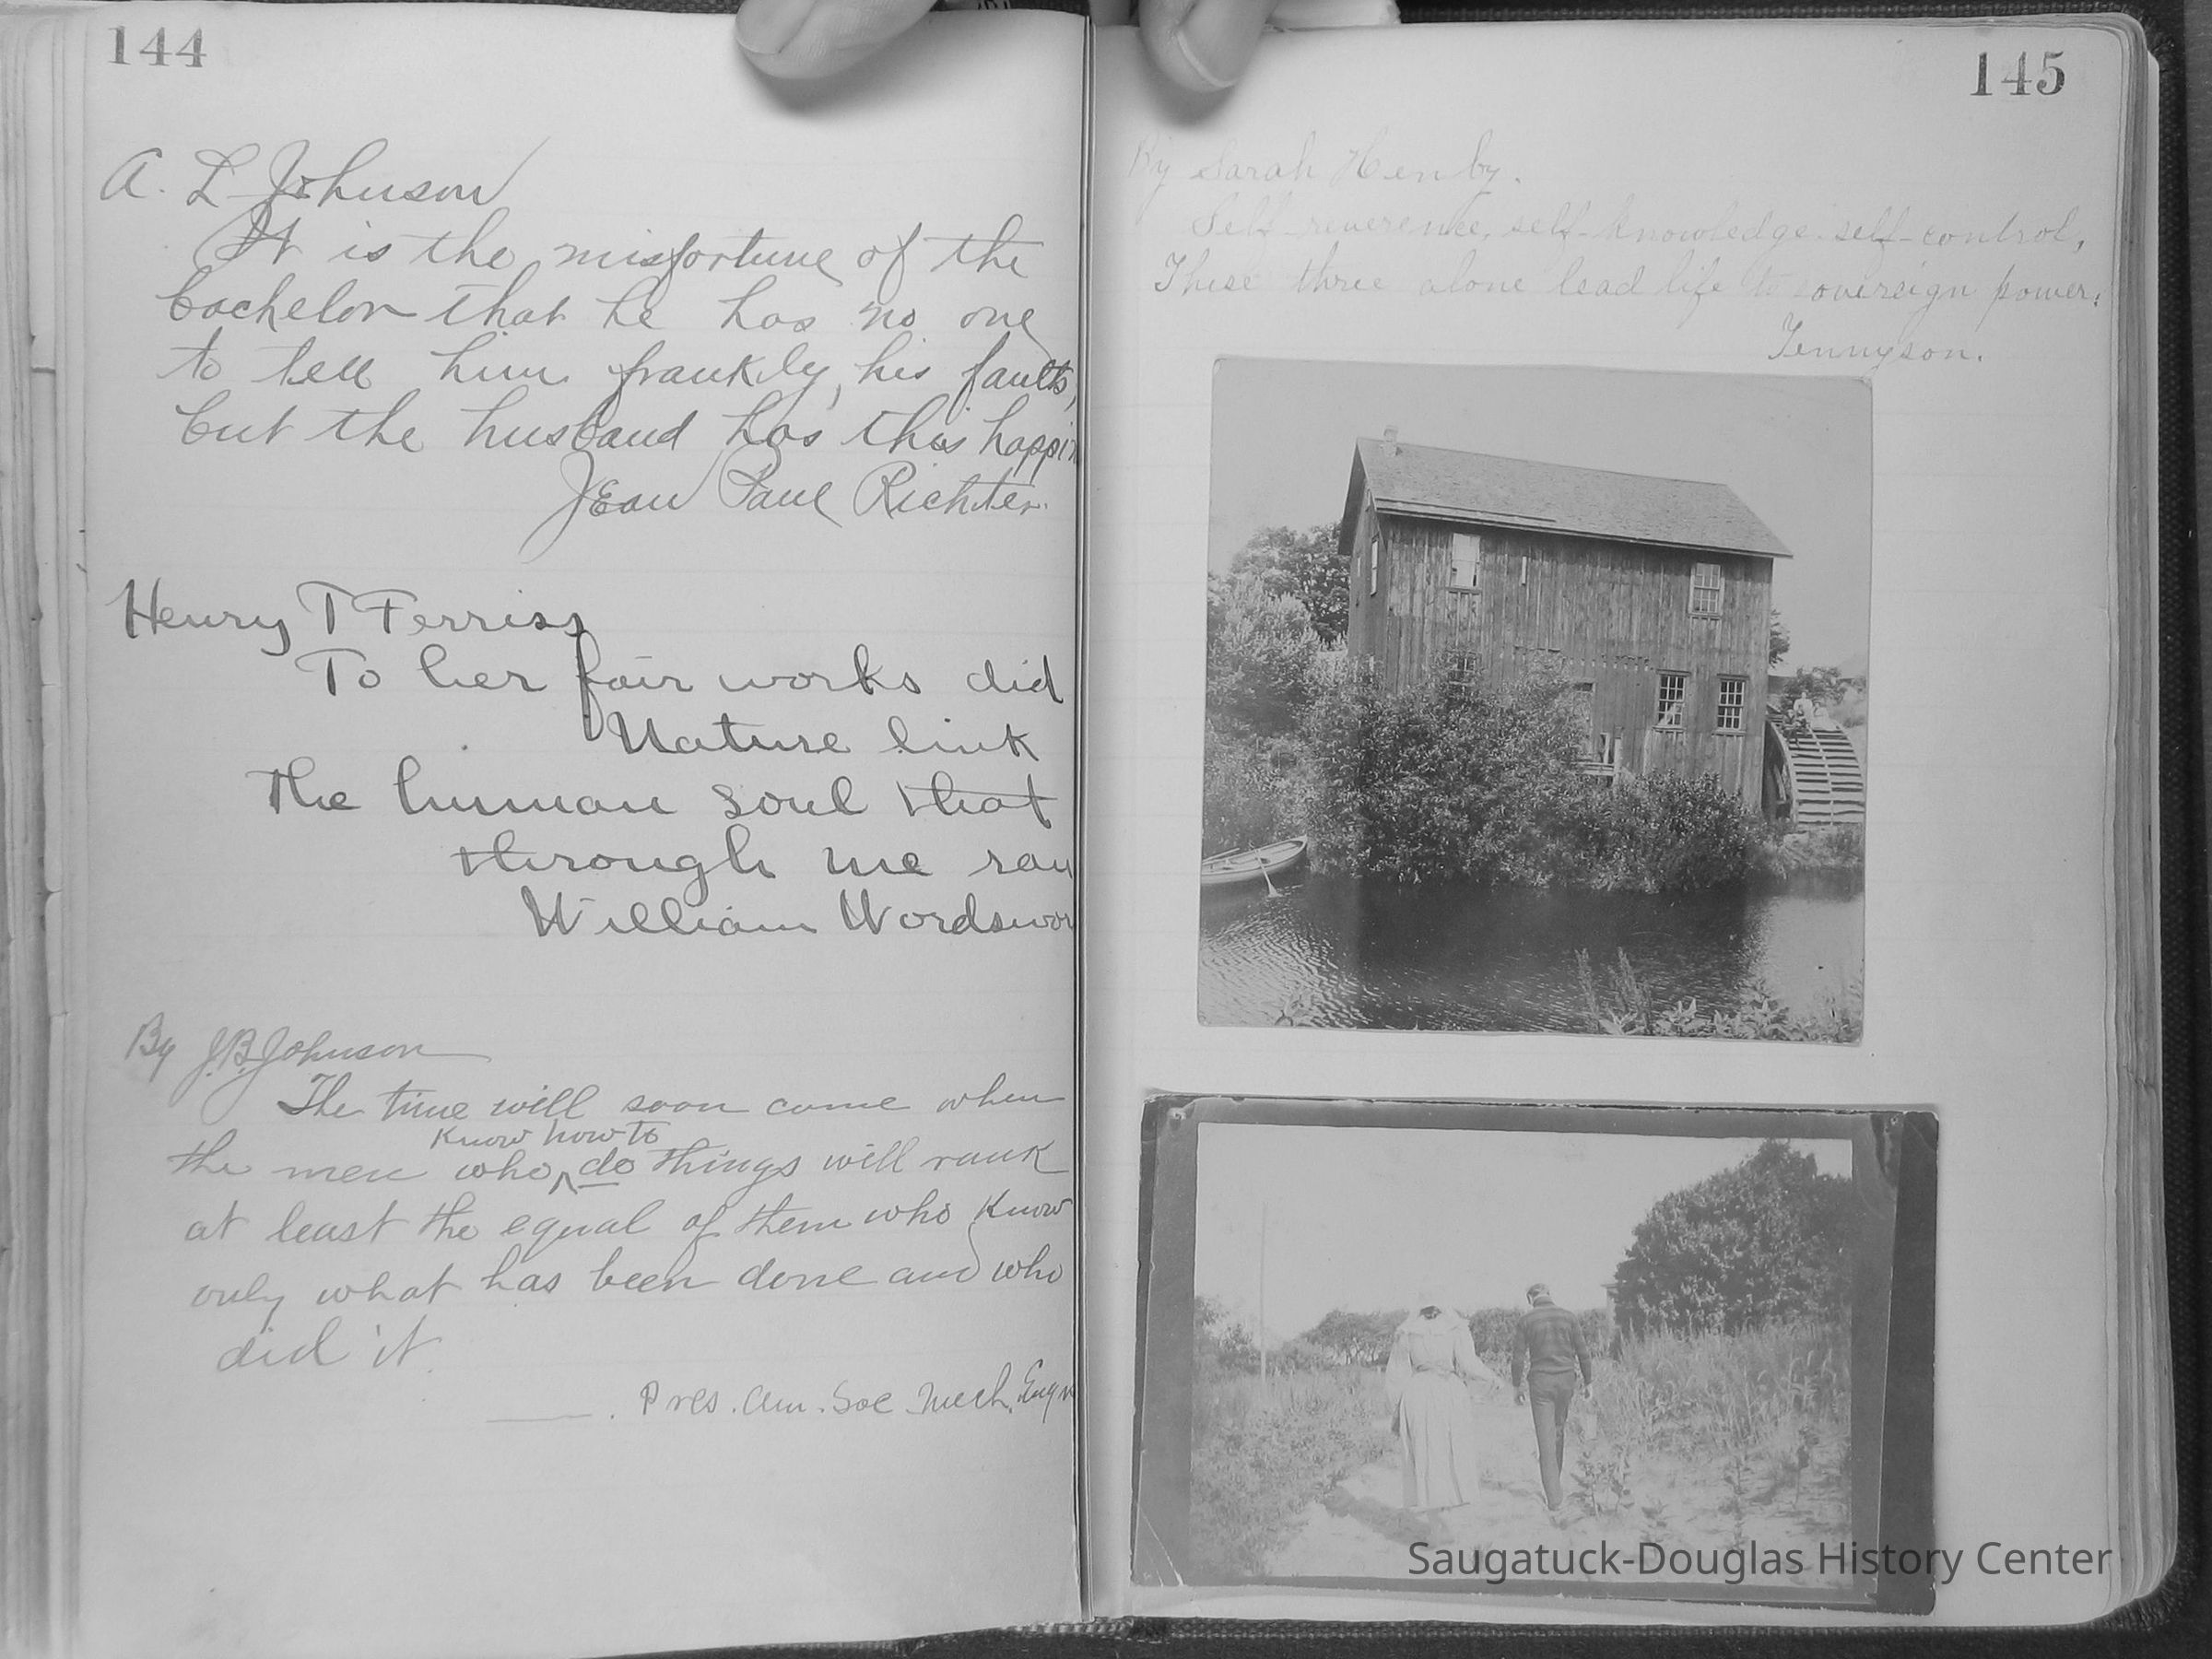 144
A. L Johnson
It is the misfortune of the
bachelor that he has no one
to tell him frankly, his faults,
but the husband has this happin
Jean Paul Richter.
Henry T Ferriss
To her fair works did
Nature link
The human soul that
through me ran
William Wordswor
By J.B. Johnson
The time will soon come when
know how to
the men who ^ do things will rank
at least the equal of them who know
only what has been done and who
did it.
Pres. Am. Soc Mech. Engn
145
By Sarah Henby.
Self-reverence, self-knowledge self-control,
These three alone lead life to sovereign power.
Tennyson.
Saugatuck-Douglas History Center